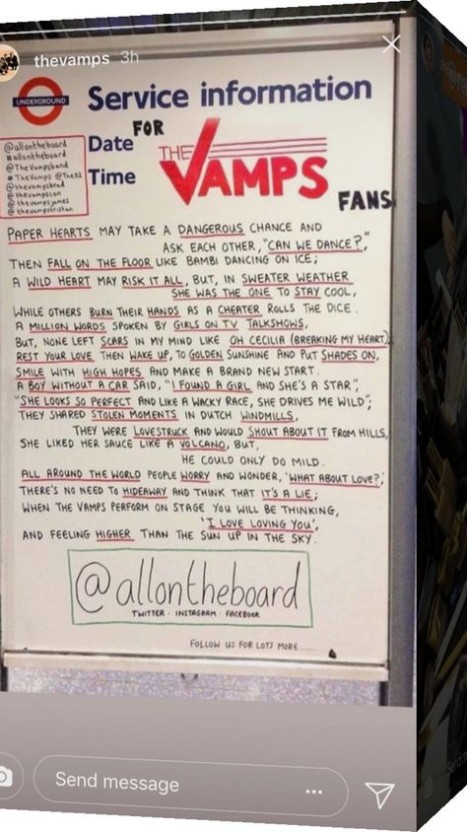 thevamps 3h
UNDERGROUND
Service information
Date FOR
Time
THE VAMPS
FANS
@allontheboard
#allontheboard
@TheVampsband
@thevampsbrad
@thevampscon
@thevampsjames
@thevampstristan
PAPER HEARTS MAY TAKE A DANGEROUS CHANCE AND
ASK EACH OTHER, "CAN WE DANCE?",
THEN FALL ON THE FLOOR LIKE BAMBI DANCING ON ICE;
A WILD HEART MAY RISK IT ALL, BUT, IN SWEATER WEATHER
SHE WAS THE ONE TO STAY COOL,
WHILE OTHERS BURN THEIR HANDS AS A CHEATER ROLLS THE DICE.
A MILLION WORDS SPOKEN BY GIRLS ON TV TALKSHOWS,
BUT, NONE LEFT SCARS IN MY MIND LIKE OH CECILIA (BREAKING MY HEART)
REST YOUR LOVE THEN WAKE UP, TO GOLDEN SUNSHINE AND PUT SHADES ON,
SMILE WITH HIGH HOPES AND MAKE A BRAND NEW START.
A BOY WITHOUT A CAR SAID, "I FOUND A GIRL AND SHE'S A STAR",
"SHE LOOKS SO PERFECT AND LIKE A WACKY RACE, SHE DRIVES ME WILD";
THEY SHARED STOLEN MOMENTS IN DUTCH WINDMILLS,
THEY WERE LOVESTRUCK AND WOULD SHOUT ABOUT IT FROM HILLS,
SHE LIKED HER SAUCE LIKE A VOLCANO, BUT,
HE COULD ONLY DO MILD.
ALL AROUND THE WORLD PEOPLE WORRY AND WONDER, 'WHAT ABOUT LOVE?',
THERE'S NO NEED TO HIDEAWAY AND THINK THAT IT'S A LIE;
WHEN THE VAMPS PERFORM ON STAGE YOU WILL BE THINKING,
'I LOVE LOVING YOU',
AND FEELING HIGHER THAN THE SUN UP IN THE SKY.
@allontheboard
TWITTER · INSTAGRAM · FACEBOOK
FOLLOW US FOR LOTS MORE
Send message